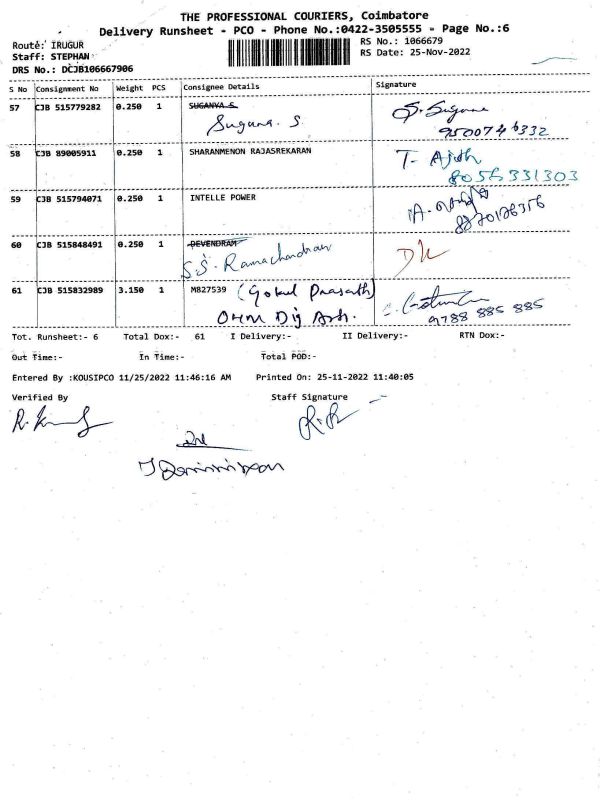 THE PROFESSIONAL COURIERS, Coimbatore
Delivery Runsheet - PCO - Phone No.:0422-3505555 - Page No.:6
Route: IRUGUR
RS No.: 1066679
Staff: STEPHAN
RS Date: 25-Nov-2022
DRS No.: DCJB106667906
S No Consignment No Weight PCS Consignee Details Signature
57 CJB 515779282 0.250 1 SUGANYA S
Suguna. S. S. Suguna
9500746332
58 CJB 89005911 0.250 1 SHARANMENON RAJASREKARAN T. Ajith
8056331303
59 CJB 515794071 0.250 1 INTELLE POWER
8220126356
60 CJB 515848491 0.250 1 DEVENDRAM
S.S. Ramachandran
61 CJB 515832989 3.150 1 M827539 (Gokul Prasath)
9788 885 885
Tot. Runsheet:- 6 Total Dox:- 61 I Delivery:- II Delivery:- RTN Dox:-
Out Time:- In Time:- Total POD:-
Entered By :KOUSIPCO 11/25/2022 11:46:16 AM Printed On: 25-11-2022 11:40:05
Verified By Staff Signature